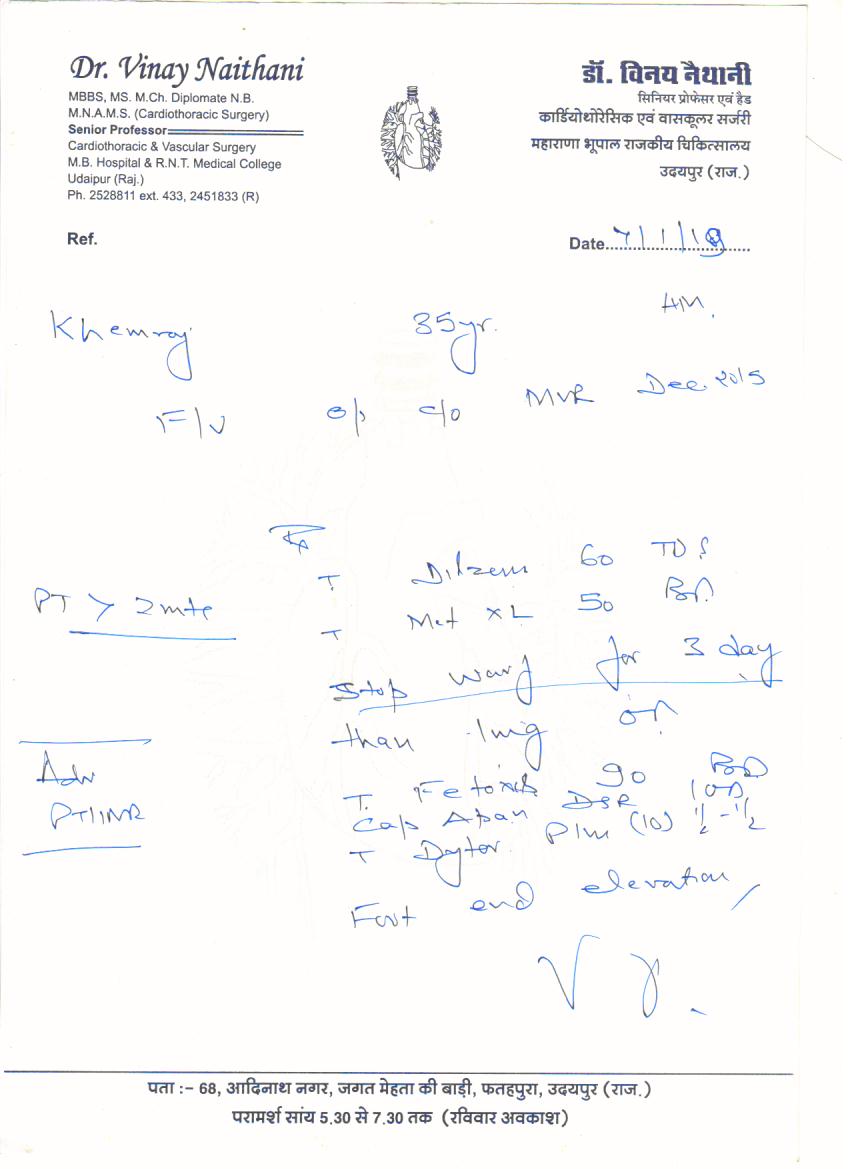 Dr. Vinay Naithani
MBBS, MS. M.Ch. Diplomate N.B.
M.N.A.M.S. (Cardiothoracic Surgery)
Senior Professor
Cardiothoracic & Vascular Surgery
M.B. Hospital & R.N.T. Medical College
Udaipur (Raj.)
Ph. 2528811 ext. 433, 2451833 (R)
डॉ. विनय नैथानी
सिनियर प्रोफेसर एवं हैड
कार्डियोथोरेसिक एवं वासकूलर सर्जरी
महाराणा भूपाल राजकीय चिकित्सालय
उदयपुर (राज.)
Ref.
Date
Khemraj 35 yr.
F/U c/o MVR Dec. 2015
T. Dilzem 60 TDS
T Met XL 50
PT > 2 mte
Stop warf for 3 day
than 1mg
Adv
PT/INR
T. 90 BD
Cap Apan DSR
T Dytor Plus (10) ½ - ½
Foot end elevation
पता :– 68, आदिनाथ नगर, जगत मेहता की बाड़ी, फतहपुरा, उदयपुर (राज.)
परामर्श सांय 5.30 से 7.30 तक (रविवार अवकाश)